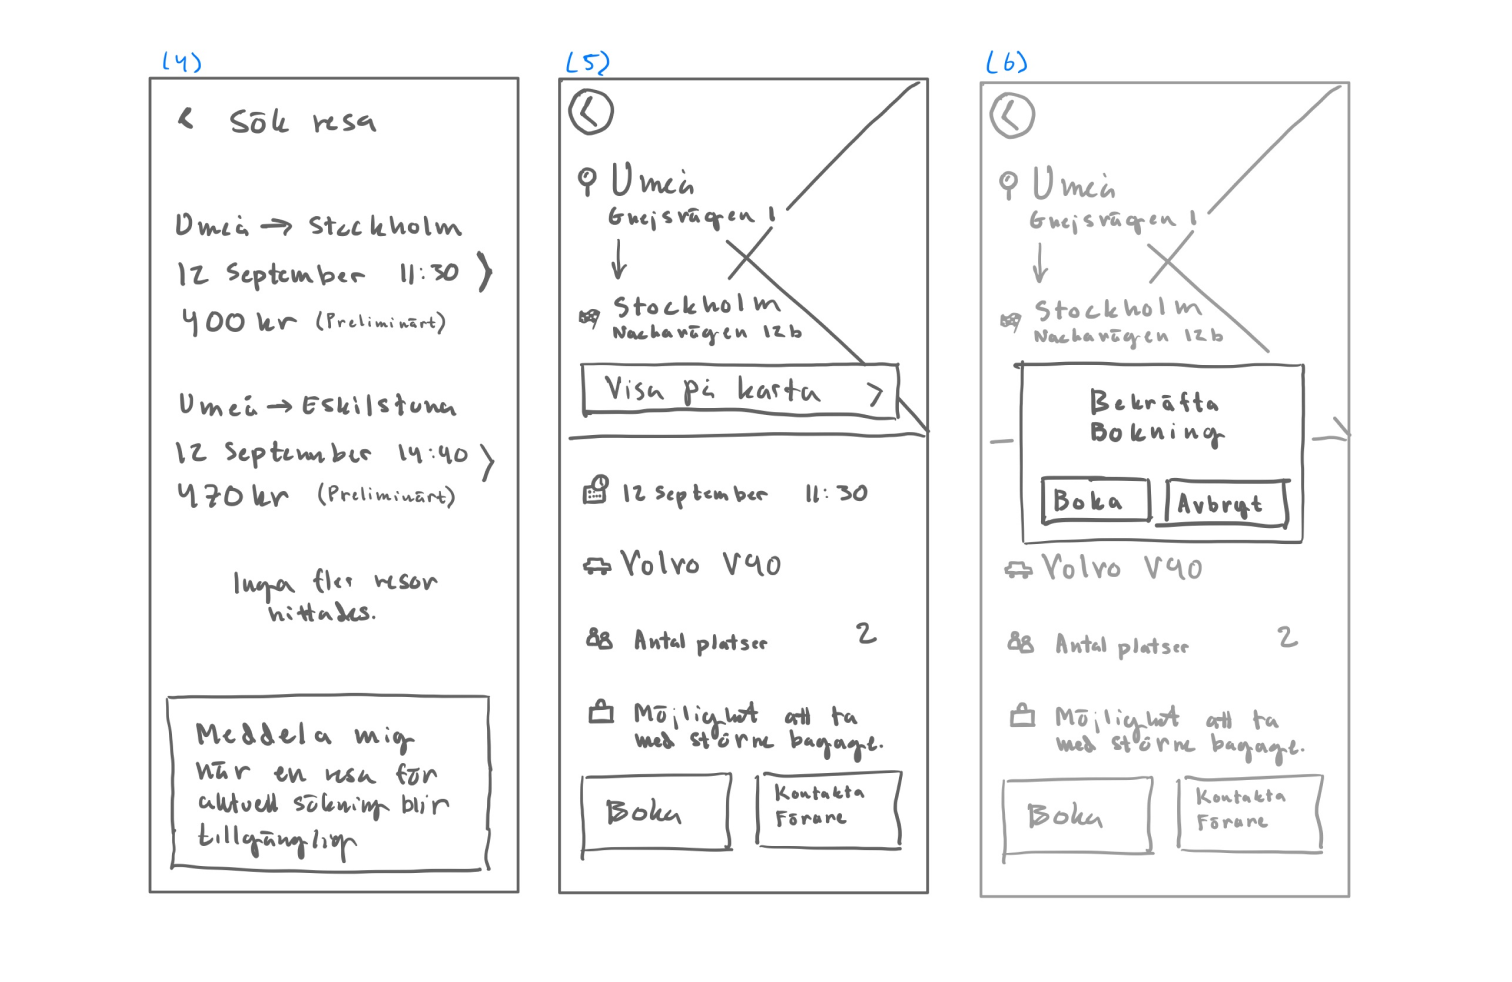 (4)
< Sök resa
Umeå → Stockholm
12 September 11:30 >
400 kr (Preliminärt)
Umeå → Eskilstuna
12 September 14:40 >
470 kr (Preliminärt)
Inga fler resor
hittades.
Meddela mig
när en resa för
aktuell sökning blir
tillgänglig
(5)
<
Umeå
Gnejsvägen 1
↓
Stockholm
Nackavägen 12b
Visa på karta >
12 September 11:30
Volvo V90
Antal platser 2
Möjlighet att ta
med större bagage.
Boka
Kontakta
Förare
(6)
<
Umeå
Gnejsvägen 1
↓
Stockholm
Nackavägen 12b
Bekräfta
Bokning
Boka Avbryt
Volvo V90
Antal platser 2
Möjlighet att ta
med större bagage.
Boka
Kontakta
Förare